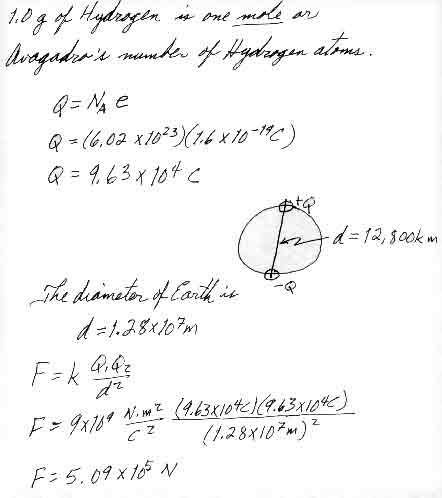 1.0 g of Hydrogen is one mole or
Avagadro's number of Hydrogen atoms.
Q = N_A e
Q = (6.02 x 10^23)(1.6 x 10^-19 C)
Q = 9.63 x 10^4 C
+Q
d = 12,800 km
-Q
The diameter of Earth is
d = 1.28 x 10^7 m
F = k Q₁Q₂/d²
F = 9x10^9 N·m²/C² (9.63x10^4 C)(9.63x10^4 C)/(1.28x10^7 m)²
F = 5.09 x 10^5 N